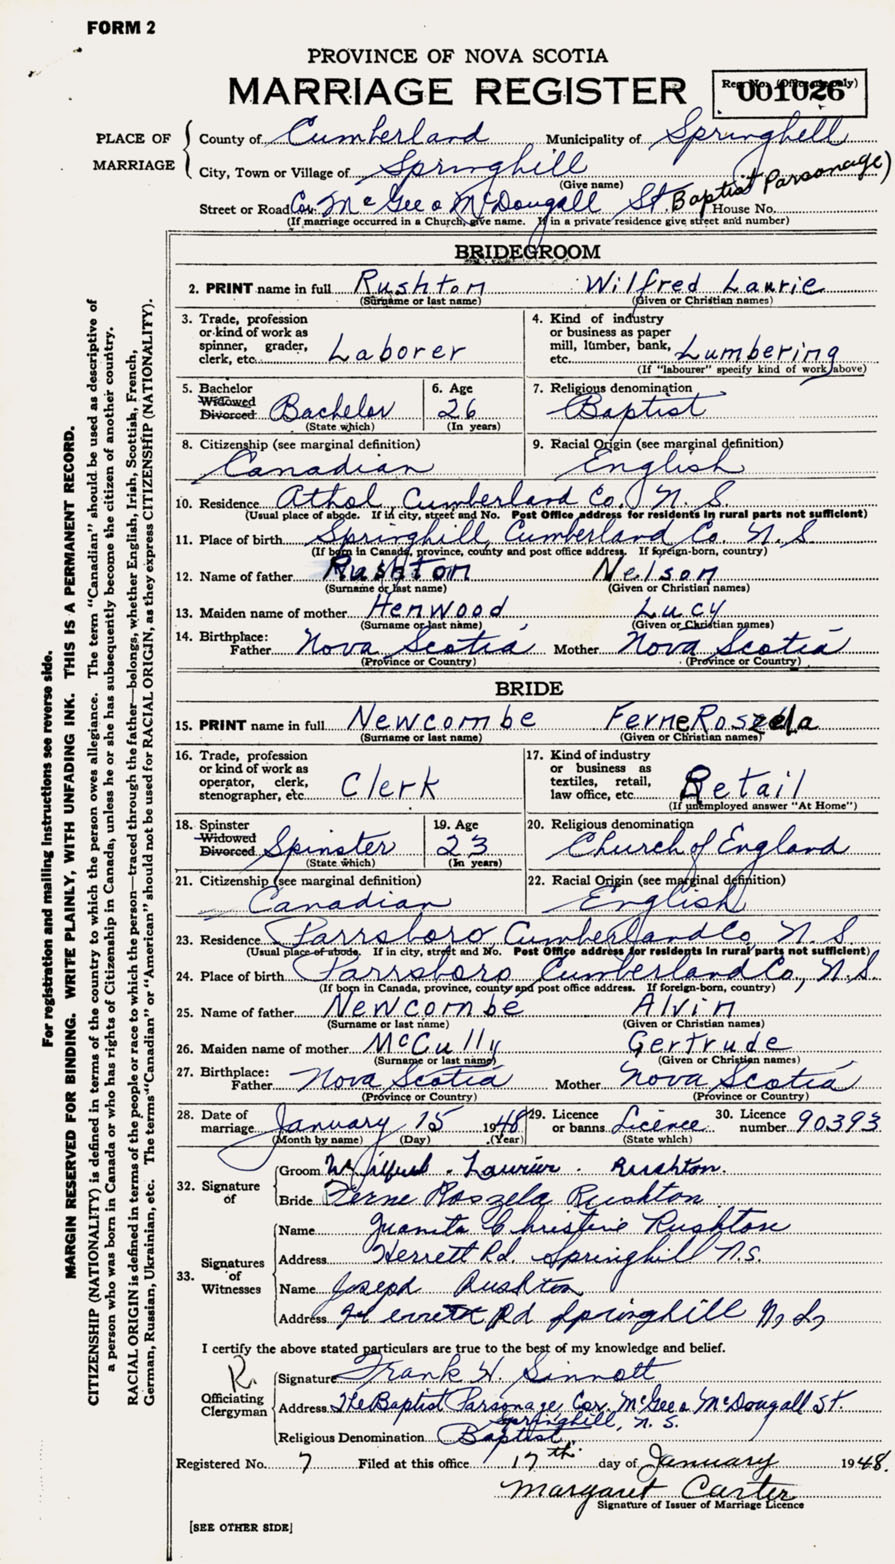 FORM 2
PROVINCE OF NOVA SCOTIA
MARRIAGE REGISTER
Reg. No. (Office use only)
001026
PLACE OF MARRIAGE
County of Cumberland Municipality of Springhill
City, Town or Village of Springhill
(Give name)
Street or Road Cor. McGee & McDougall St. Baptist Parsonage) House No.
(If marriage occurred in a Church, give name. If in a private residence give street and number)
BRIDEGROOM
2. PRINT name in full Rushton Wilfred Laurie
(Surname or last name) (Given or Christian names)
3. Trade, profession or kind of work as spinner, grader, clerk, etc. Laborer
4. Kind of industry or business as paper mill, lumber, bank, etc. Lumbering
(If "labourer" specify kind of work above)
5. Bachelor Widowed Divorced Bachelor
(State which)
6. Age 26
(In years)
7. Religious denomination
Baptist
8. Citizenship (see marginal definition)
Canadian
9. Racial Origin (see marginal definition)
English
10. Residence Athol Cumberland Co. N. S.
(Usual place of abode. If in city, street and No. Post Office address for residents in rural parts not sufficient)
11. Place of birth Springhill, Cumberland Co N. S.
(If born in Canada, province, county and post office address. If foreign-born, country)
12. Name of father Rushton Nelson
(Surname or last name) (Given or Christian names)
13. Maiden name of mother Henwood Lucy
(Surname or last name) (Given or Christian names)
14. Birthplace:
Father Nova Scotia Mother Nova Scotia
(Province or Country) (Province or Country)
BRIDE
15. PRINT name in full Newcombe Ferne Roszela
(Surname or last name) (Given or Christian names)
16. Trade, profession or kind of work as operator, clerk, stenographer, etc. Clerk
17. Kind of industry or business as textiles, retail, law office, etc. Retail
(If unemployed answer "At Home")
18. Spinster Widowed Divorced Spinster
(State which)
19. Age 23
(In years)
20. Religious denomination
Church of England
21. Citizenship (see marginal definition)
Canadian
22. Racial Origin (see marginal definition)
English
23. Residence Parrsboro Cumberland Co, N. S
(Usual place of abode. If in city, street and No. Post Office address for residents in rural parts not sufficient)
24. Place of birth Parrsboro Cumberland Co., N.S.
(If born in Canada, province, county and post office address. If foreign-born, country)
25. Name of father Newcombe Alvin
(Surname or last name) (Given or Christian names)
26. Maiden name of mother McCully Gertrude
(Surname or last name) (Given or Christian names)
27. Birthplace:
Father Nova Scotia Mother Nova Scotia
(Province or Country) (Province or Country)
28. Date of marriage January 15 1948
(Month by name) (Day) (Year)
29. Licence or banns Licence
(State which)
30. Licence number 90393
32. Signature of
Groom Wilfred Laurier Rushton.
Bride Ferne Roszela Rushton
33. Signatures of Witnesses
Name Juanita Christine Rushton
Address Herrett Rd. Springhill N.S.
Name Joseph Rushton
Address Herrett Rd Springhill N.S.
I certify the above stated particulars are true to the best of my knowledge and belief.
R.
Officiating Clergyman
Signature Frank H. Sinnott
Address The Baptist Parsonage, Cor. McGee & McDougall St.
Springhill, N. S.
Religious Denomination Baptist
Registered No. 7 Filed at this office 17th day of January 1948.
Margaret Carter
Signature of Issuer of Marriage Licence
[SEE OTHER SIDE]
For registration and mailing instructions see reverse side.
MARGIN RESERVED FOR BINDING. WRITE PLAINLY, WITH UNFADING INK. THIS IS A PERMANENT RECORD.
CITIZENSHIP (NATIONALITY) is defined in terms of the country to which the person owes allegiance. The term "Canadian" should be used as descriptive of
a person who was born in Canada or who has rights of Citizenship in Canada, unless he or she has subsequently become the citizen of another country.
RACIAL ORIGIN is defined in terms of the people or race to which the person—traced through the father—belongs, whether English, Irish, Scottish, French,
German, Russian, Ukrainian, etc. The terms "Canadian" or "American" should not be used for RACIAL ORIGIN, as they express CITIZENSHIP (NATIONALITY).